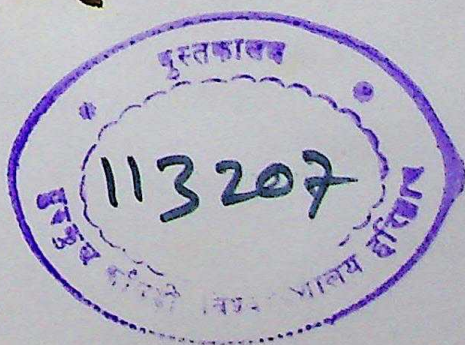 पुस्तकालय
113207
गुरुकुल काँगड़ी विश्वविद्यालय हरिद्वार